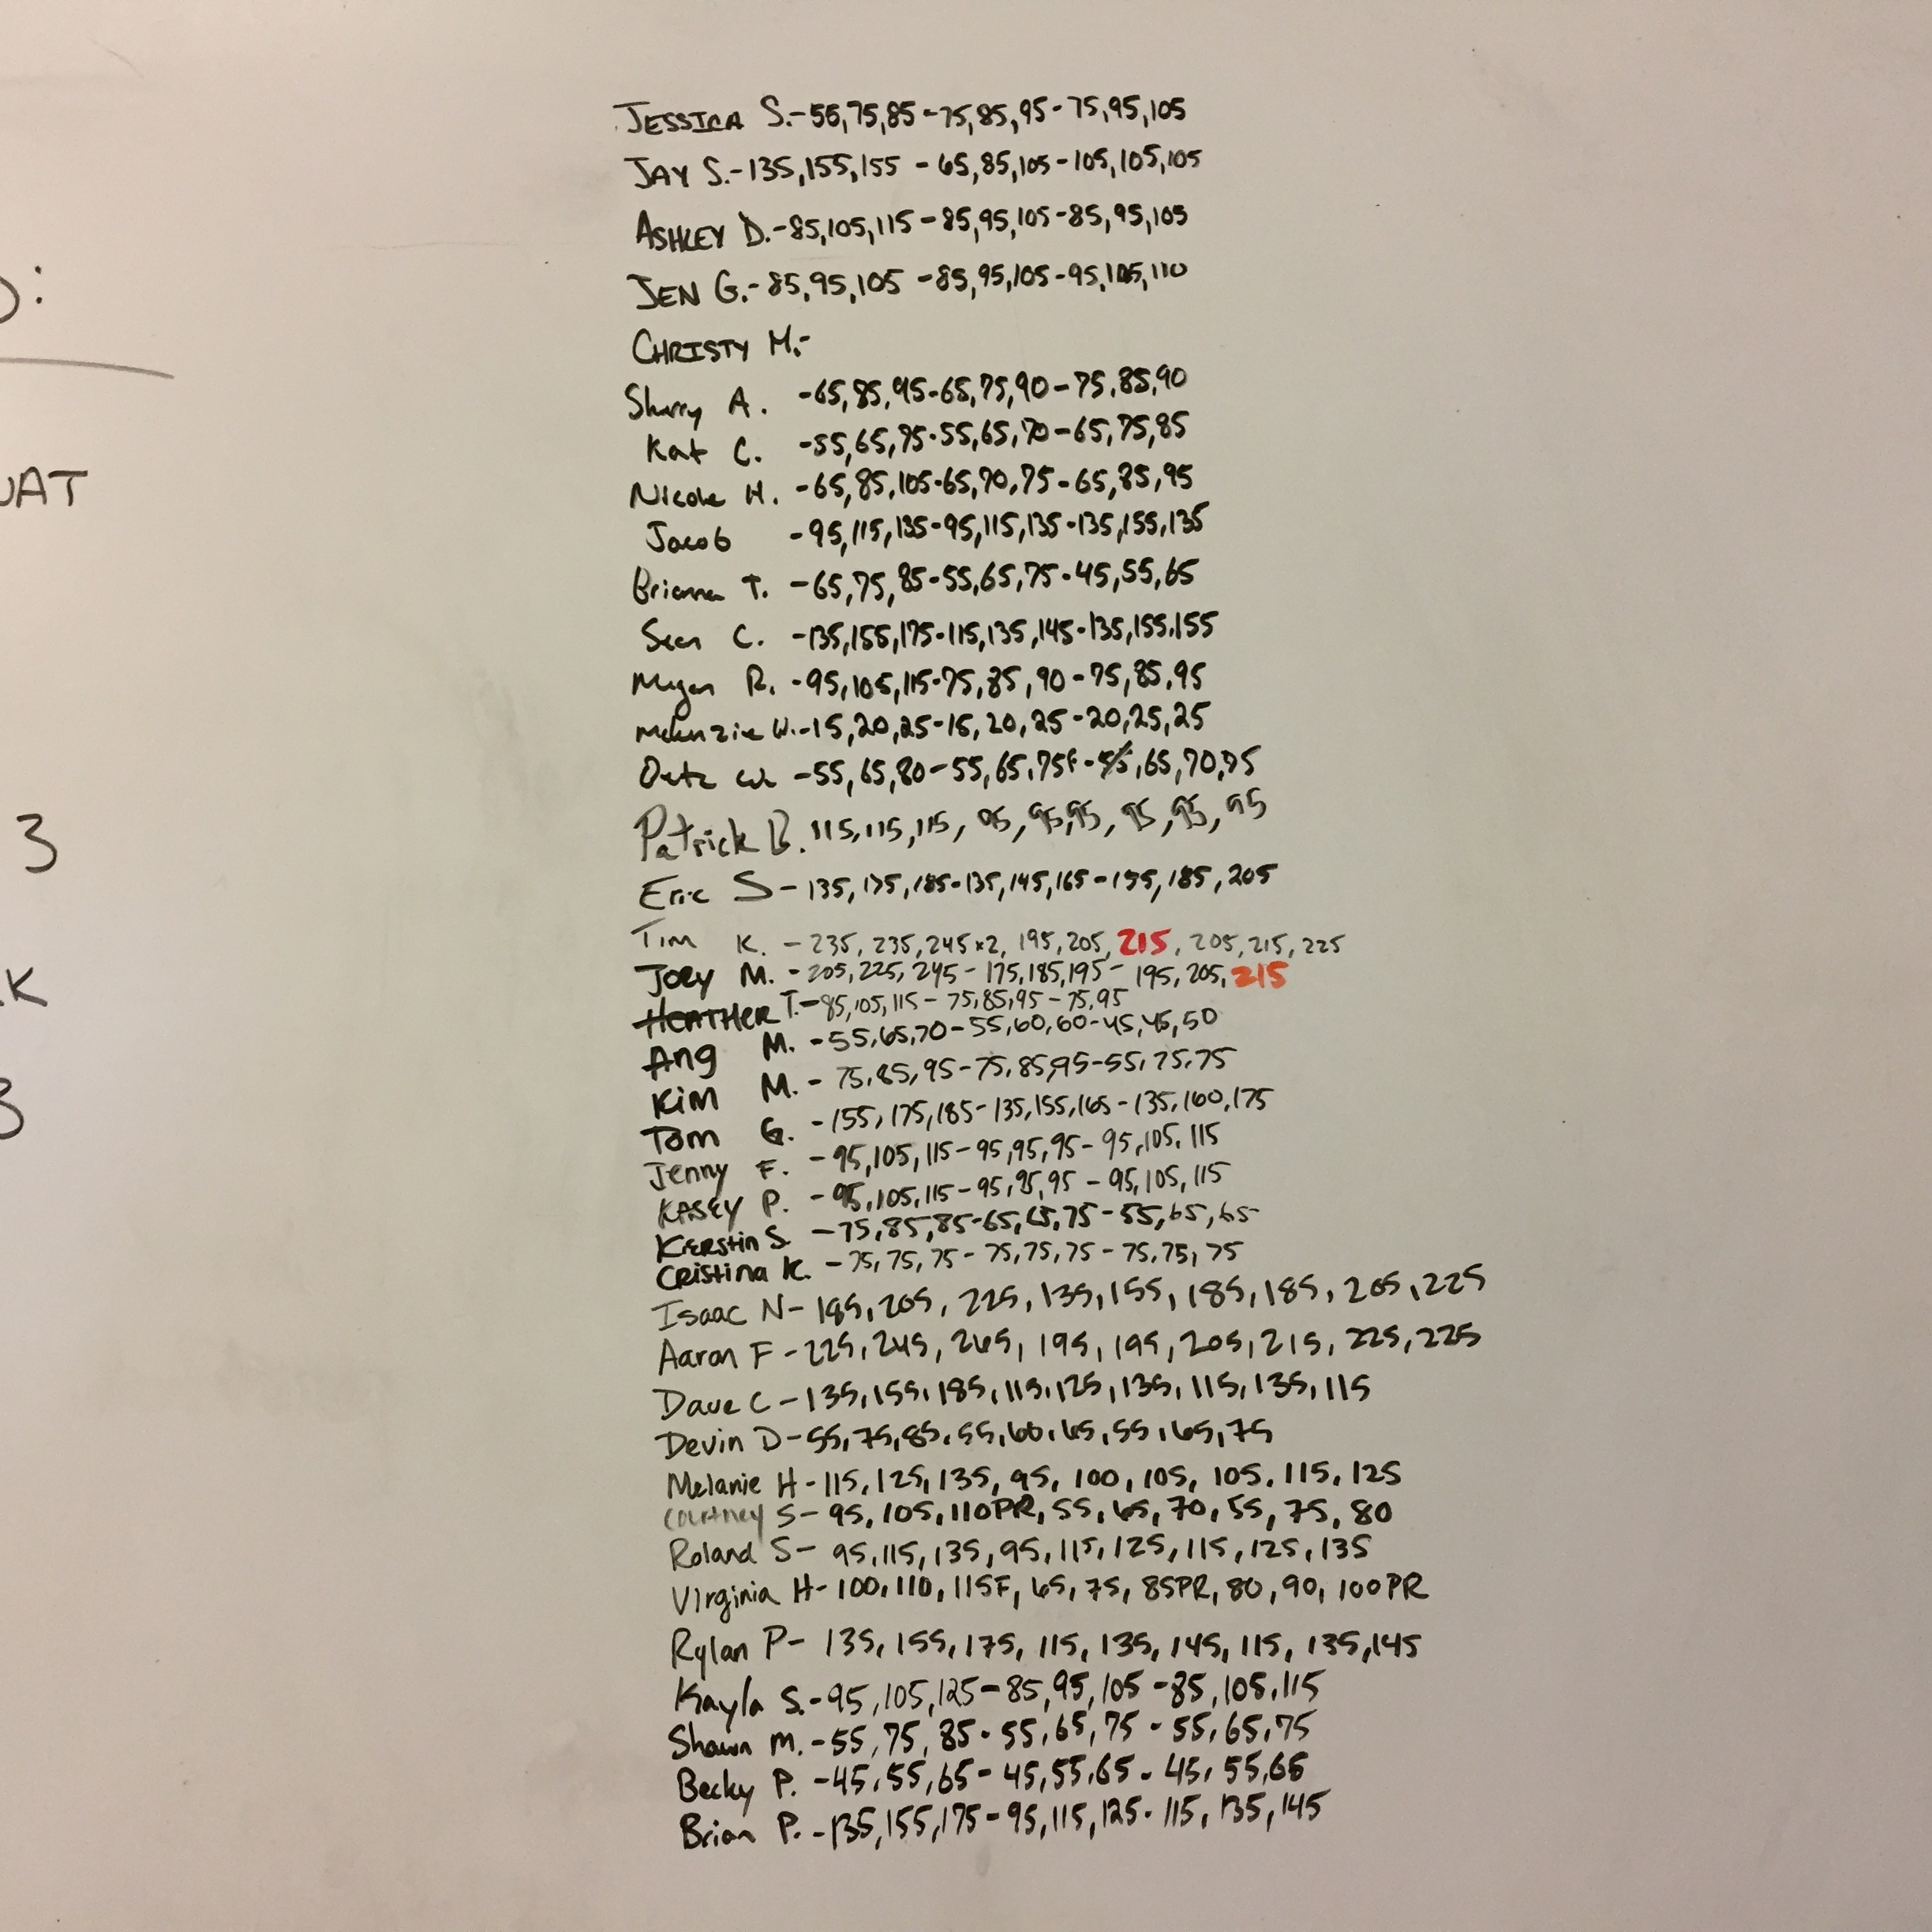 ):
UAT
3
K
3
JESSICA S.-55,75,85-75,85,95-75,95,105
JAY S.-135,155,155 - 65,85,105-105,105,105
ASHLEY D.-85,105,115-85,95,105-85,95,105
JEN G.-85,95,105 -85,95,105-95,105,110
CHRISTY M.-
Sherry A. -65,85,95-65,75,90-75,85,90
Kat C. -55,65,75-55,65,70-65,75,85
Nicole H. -65,85,105-65,70,75-65,85,95
Jacob -95,115,135-95,115,135-135,155,135
Brianna T. -65,75,85-55,65,75-45,55,65
Sean C. -135,155,175-115,135,145-135,155,155
Megan R. -95,105,115-75,85,90-75,85,95
Mckenzie W.-15,20,25-15,20,25-20,25,25
-55,65,80-55,65,75f-55,65,70,75
Patrick B. 115,115,115, 95,95,95, 95,95,95
Eric S-135,175,185-135,145,165-155,185,205
Tim K. - 235, 235, 245x2, 195, 205, 215, 205, 215, 225
JOEY M. - 205, 225, 245 - 175,185,195 - 195, 205, 215
HEATHER T.-85,105,115- 75,85,95-75,95
Ang M. -55,65,70-55,60,60-45,45,50
Kim M. - 75,85,95-75,85,95-55,75,75
Tom G. -155,175,185-135,155,165-135,160,175
Jenny F. -95,105,115-95,95,95-95,105,115
KASEY P. -95,105,115-95,95,95 -95,105,115
Kerstin S. -75,85,85-65,65,75-55,65,65
Cristina K. -75,75,75-75,75,75-75,75,75
Isaac N- 185,205, 225, 135,155, 185,185, 205,225
Aaron F -225,245, 265, 195, 195, 205,215, 225,225
Dave C-135,155,185,115,125,135,115,135,115
Devin D-55,75,85,55,60,65,55,65,75
Melanie H-115,125,135, 95, 100, 105, 105, 115, 125
Courtney S- 95, 105, 110PR, 55, 65, 70, 55, 75, 80
Roland S- 95,115,135,95,115,125,115,125,135
Virginia H-100,110,115F, 65, 75, 85PR, 80, 90, 100PR
Rylan P- 135, 155, 175, 115, 135, 145, 115, 135,145
Kayla S.-95,105,125-85,95,105-85,105,115
Shawn M.-55,75,85-55,65,75-55,65,75
Becky P. -45,55,65-45,55,65-45,55,65
Brian P. -135,155,175-95,115,125-115,135,145